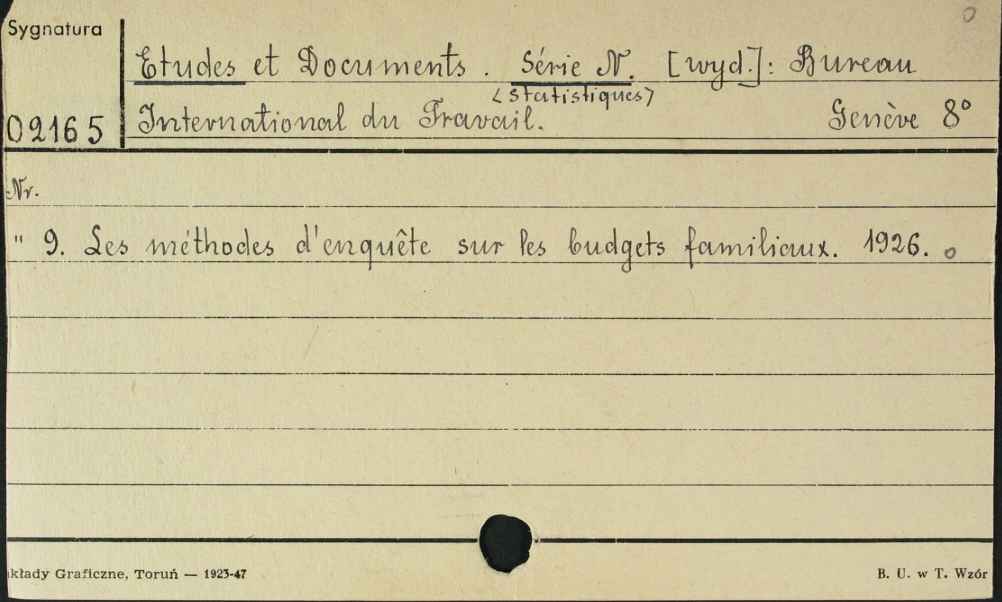 Sygnatura
Etudes et Documents. Série N. [wyd.]: Bureau
<Statistiques>
02165 International du Travail. Genève 8°
Nr.
" 9. Les méthodes d'enquête sur les budgets familiaux. 1926.
kłady Graficzne, Toruń — 1923-47 B. U. w T. Wzór